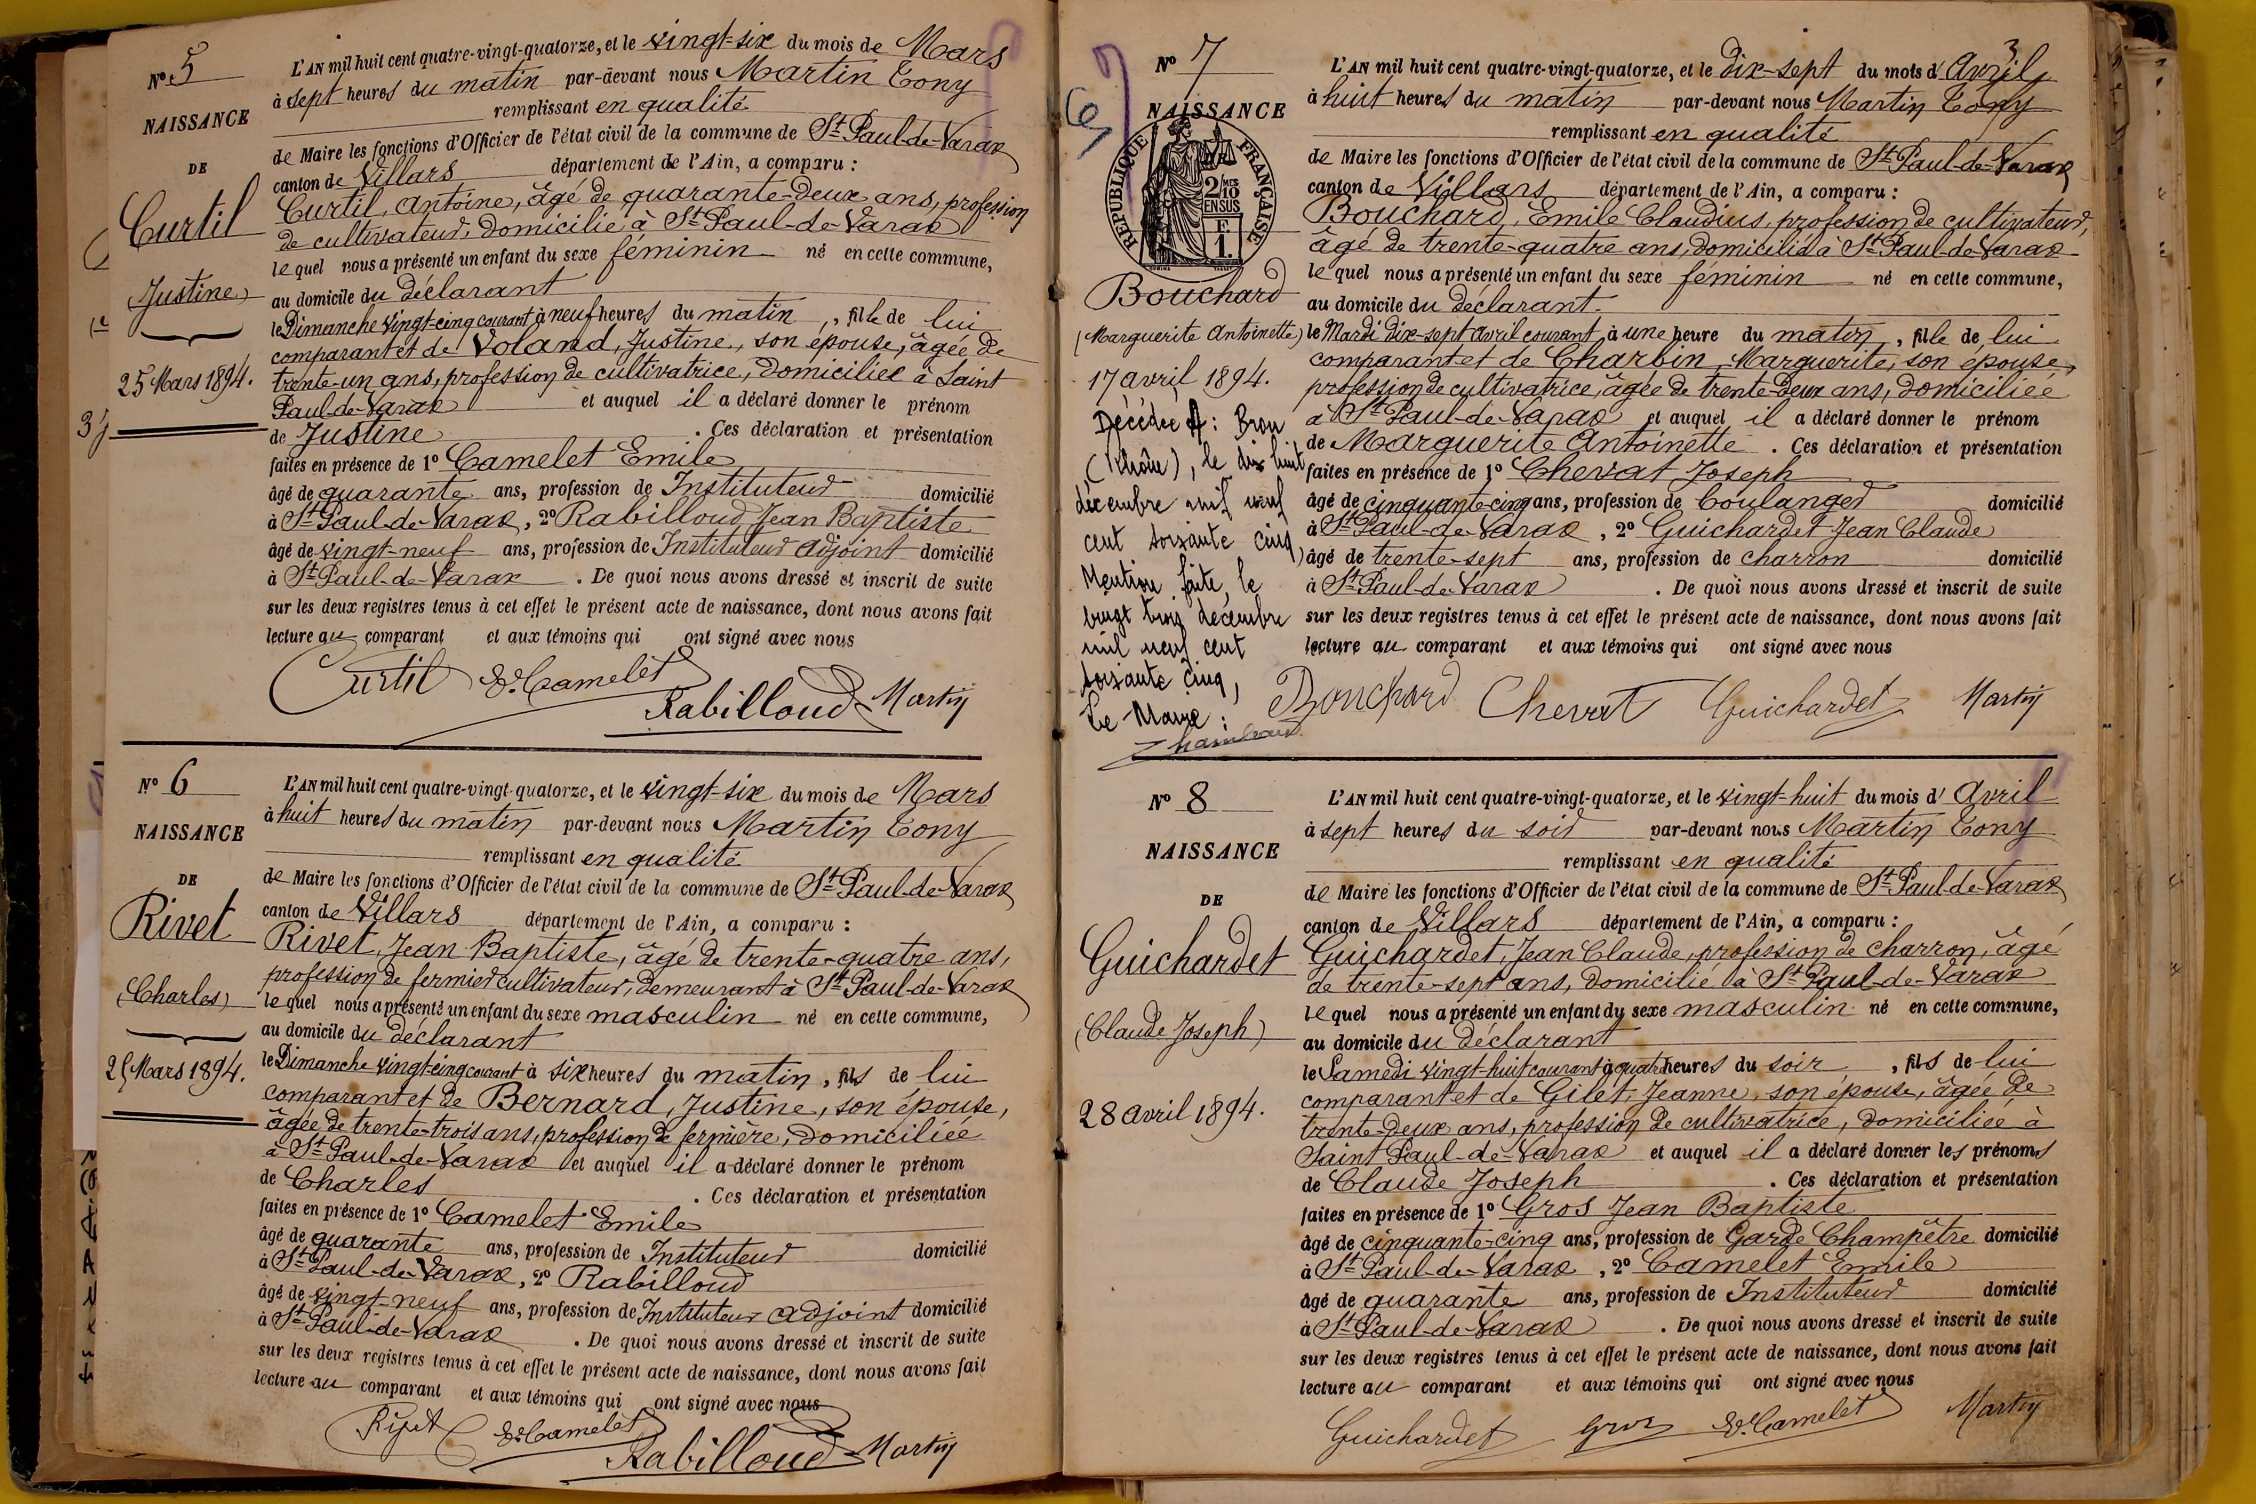 Nº 5
NAISSANCE
DE
Curtil
(Justine)
25 Mars 1894.
L'AN mil huit cent quatre-vingt-quatorze, et le vingt-six du mois de Mars
à sept heures du matin par-devant nous Martin Tony
remplissant en qualité
de Maire les fonctions d'Officier de l'état civil de la commune de St Paul-de-Varax
canton de Villars département de l'Ain, a comparu :
Curtil, Antoine, âgé de quarante-deux ans, profession
de cultivateur, domicilié à St Paul-de-Varax
lequel nous a présenté un enfant du sexe féminin né en cette commune,
au domicile du déclarant
le Dimanche vingt-cinq courant à neuf heures du matin, fille de lui
comparant et de Voland, Justine, son épouse, âgée de
trente-un ans, profession de cultivatrice, domiciliée à Saint
Paul-de-Varax et auquel il a déclaré donner le prénom
de Justine . Ces déclaration et présentation
faites en présence de 1º Camelet Emile
âgé de quarante ans, profession de Instituteur domicilié
à St Paul-de-Varax, 2º Rabilloud, Jean Baptiste
âgé de vingt-neuf ans, profession de Instituteur adjoint domicilié
à St Paul-de-Varax . De quoi nous avons dressé et inscrit de suite
sur les deux registres tenus à cet effet le présent acte de naissance, dont nous avons fait
lecture au comparant et aux témoins qui ont signé avec nous
Curtil E. Camelet
Rabilloud Martin
Nº 6
NAISSANCE
DE
Rivet
(Charles)
25 Mars 1894.
L'AN mil huit cent quatre-vingt-quatorze, et le vingt-six du mois de Mars
à huit heures du matin par-devant nous Martin Tony
remplissant en qualité
de Maire les fonctions d'Officier de l'état civil de la commune de St Paul-de-Varax
canton de Villars département de l'Ain, a comparu :
Rivet, Jean Baptiste, âgé de trente-quatre ans,
profession de fermier cultivateur, demeurant à St Paul-de-Varax
lequel nous a présenté un enfant du sexe masculin né en cette commune,
au domicile du déclarant
le Dimanche vingt-cinq courant à six heures du matin, fils de lui
comparant et de Bernard, Justine, son épouse,
âgée de trente-trois ans, profession de fermière, domiciliée
à St Paul-de-Varax et auquel il a déclaré donner le prénom
de Charles . Ces déclaration et présentation
faites en présence de 1º Camelet Emile
âgé de quarante ans, profession de Instituteur domicilié
à St Paul-de-Varax, 2º Rabilloud
âgé de vingt-neuf ans, profession de Instituteur adjoint domicilié
à St Paul-de-Varax . De quoi nous avons dressé et inscrit de suite
sur les deux registres tenus à cet effet le présent acte de naissance, dont nous avons fait
lecture au comparant et aux témoins qui ont signé avec nous
Rivet E. Camelet
Rabilloud Martin
3
Nº 7
NAISSANCE
RÉPUBLIQUE FRANÇAISE
2/10 MES
EN SUS
F.
1.
Bouchard
(Marguerite Antoinette)
17 avril 1894.
Décédée A : Bron
(Rhône), le dix huit
décembre mil neuf
cent soixante cinq,
Mention faite, le
vingt trois décembre
mil neuf cent
soixante cinq,
Le Maire :
L'AN mil huit cent quatre-vingt-quatorze, et le dix-sept du mois d'Avril
à huit heures du matin par-devant nous Martin Tony
remplissant en qualité
de Maire les fonctions d'Officier de l'état civil de la commune de St Paul-de-Varax
canton de Villars département de l'Ain, a comparu :
Bouchard, Emile Claudius, profession de cultivateur,
âgé de trente-quatre ans, domicilié à St Paul-de-Varax
lequel nous a présenté un enfant du sexe féminin né en cette commune,
au domicile du déclarant.
le Mardi dix-sept avril courant à une heure du matin, fille de lui
comparant et de Charbin, Marguerite, son épouse,
profession de cultivatrice, âgée de trente-deux ans, domiciliée
à St Paul-de-Varax et auquel il a déclaré donner le prénom
de Marguerite Antoinette . Ces déclaration et présentation
faites en présence de 1º Chevat Joseph
âgé de cinquante-cinq ans, profession de boulanger domicilié
à St Paul-de-Varax, 2º Guichardet Jean Claude
âgé de trente-sept ans, profession de charron domicilié
à St Paul-de-Varax . De quoi nous avons dressé et inscrit de suite
sur les deux registres tenus à cet effet le présent acte de naissance, dont nous avons fait
lecture au comparant et aux témoins qui ont signé avec nous
Bouchard Chevat Guichardet Martin
Nº 8
NAISSANCE
DE
Guichardet
(Claude Joseph)
28 avril 1894.
L'AN mil huit cent quatre-vingt-quatorze, et le vingt-huit du mois d'Avril
à sept heures du soir par-devant nous Martin Tony
remplissant en qualité
de Maire les fonctions d'Officier de l'état civil de la commune de St Paul-de-Varax
canton de Villars département de l'Ain, a comparu :
Guichardet, Jean Claude, profession de charron, âgé
de trente-sept ans, domicilié à St Paul-de-Varax
lequel nous a présenté un enfant du sexe masculin né en cette commune,
au domicile du déclarant
le Samedi vingt-huit courant à quatre heures du soir, fils de lui
comparant et de Gilet, Jeanne, son épouse, âgée de
trente-deux ans, profession de cultivatrice, domiciliée à
Saint Paul-de-Varax et auquel il a déclaré donner les prénoms
de Claude Joseph . Ces déclaration et présentation
faites en présence de 1º Gros Jean Baptiste
âgé de cinquante-cinq ans, profession de Garde Champêtre domicilié
à St Paul-de-Varax, 2º Camelet Emile
âgé de quarante ans, profession de Instituteur domicilié
à St Paul-de-Varax . De quoi nous avons dressé et inscrit de suite
sur les deux registres tenus à cet effet le présent acte de naissance, dont nous avons fait
lecture au comparant et aux témoins qui ont signé avec nous
Guichardet Gros E. Camelet Martin